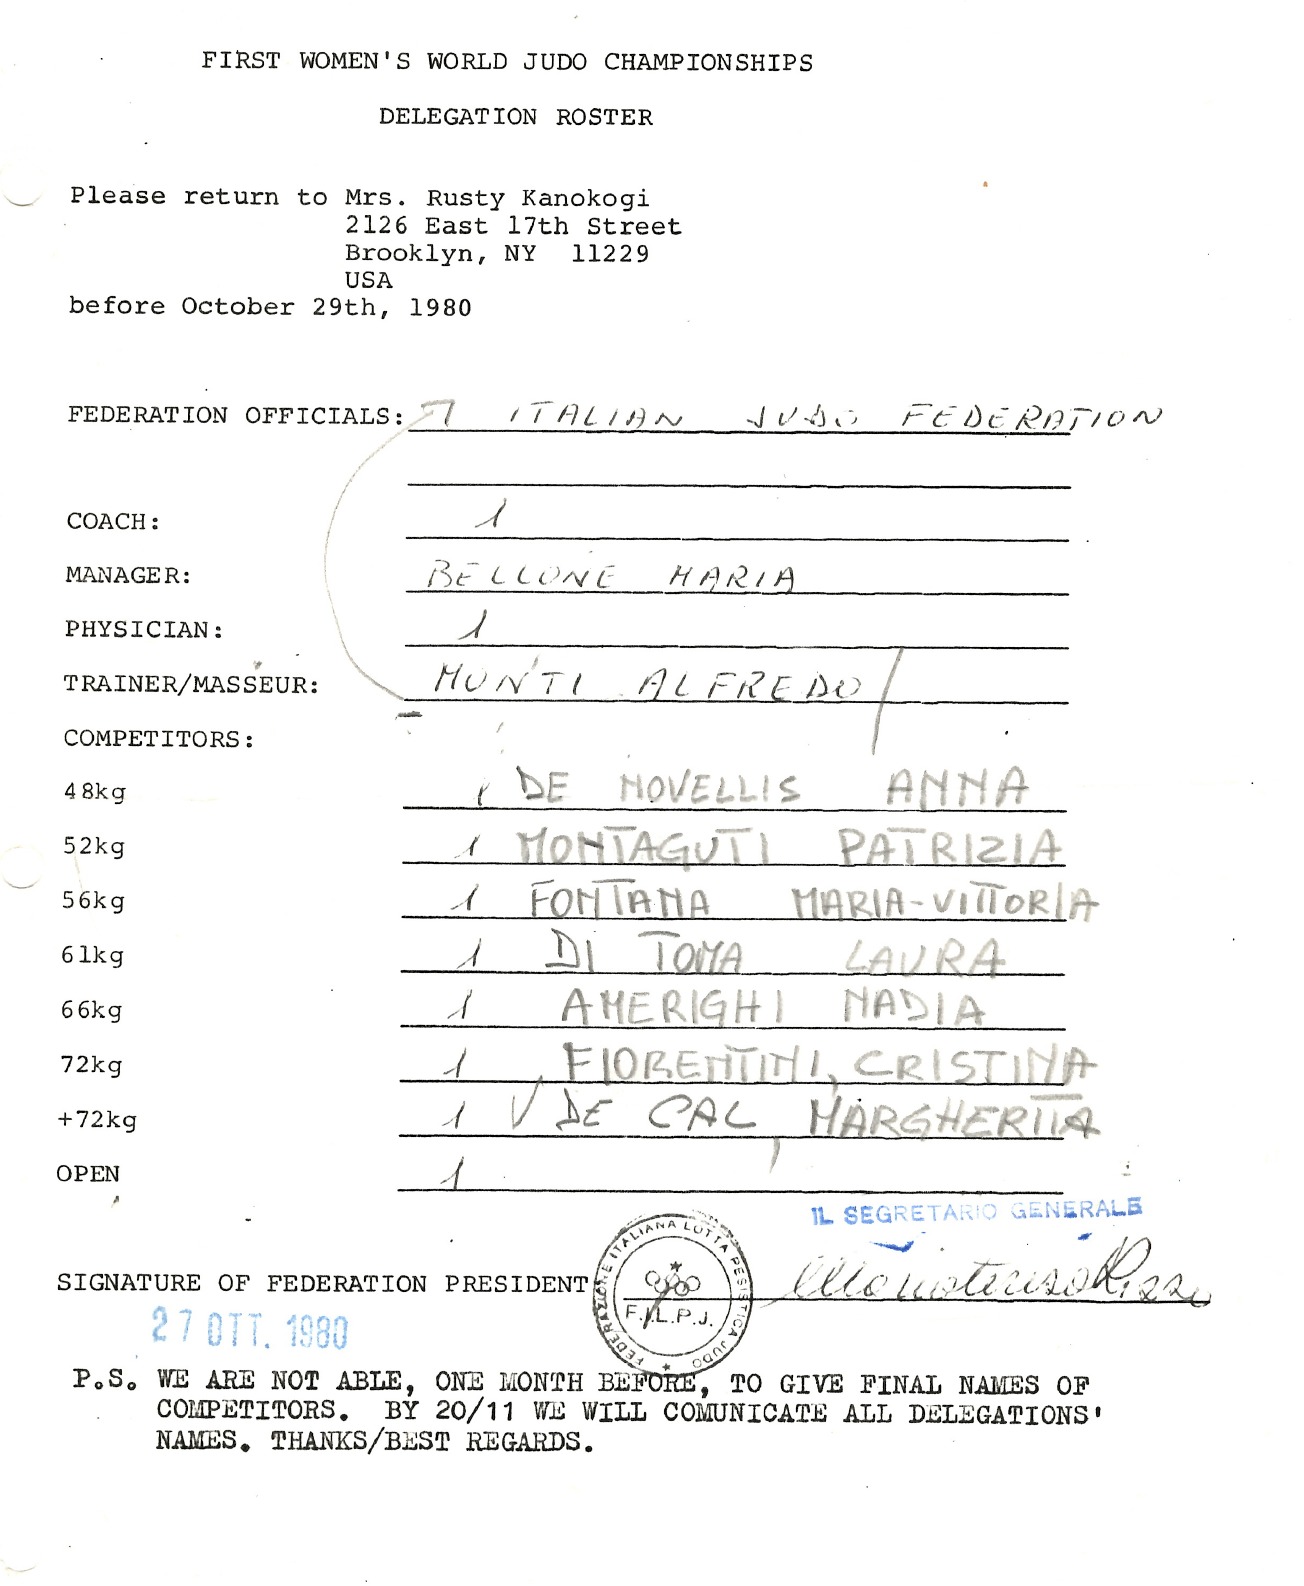 FIRST WOMEN'S WORLD JUDO CHAMPIONSHIPS
DELEGATION ROSTER
Please return to Mrs. Rusty Kanokogi
2126 East 17th Street
Brooklyn, NY 11229
USA
before October 29th, 1980
FEDERATION OFFICIALS: ITALIAN JUDO FEDERATION
COACH: 1
MANAGER: BELLONE MARIA
PHYSICIAN: 1
TRAINER/MASSEUR: MONTI ALFREDO
COMPETITORS:
48kg 1 DE NOVELLIS ANNA
52kg 1 MONTAGUTI PATRIZIA
56kg 1 FONTANA MARIA-VITTORIA
61kg 1 DI TOMA LAURA
66kg 1 AMERIGHI NADIA
72kg 1 FIORENTINI, CRISTINA
+72kg 1 DE CAL MARGHERITA
OPEN 1
IL SEGRETARIO GENERALE
SIGNATURE OF FEDERATION PRESIDENT
FEDERAZIONE ITALIANA LOTTA PESISTICA JUDO
F.I.L.P.J.
27 OTT. 1980
P.S. WE ARE NOT ABLE, ONE MONTH BEFORE, TO GIVE FINAL NAMES OF
COMPETITORS. BY 20/11 WE WILL COMUNICATE ALL DELEGATIONS'
NAMES. THANKS/BEST REGARDS.